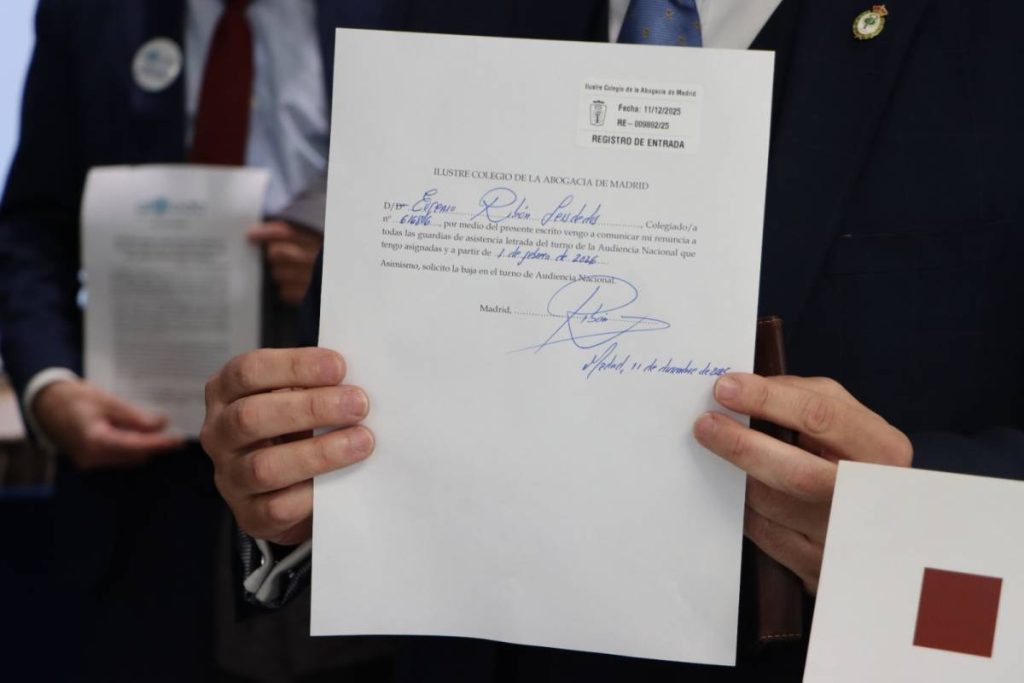 Ilustre Colegio de la Abogacía de Madrid
Fecha: 11/12/2025
RE – 009892/25
REGISTRO DE ENTRADA
ILUSTRE COLEGIO DE LA ABOGACIA DE MADRID
D/Dª Eugenio Ribón Seisdedos ............., Colegiado/a
nº ......, por medio del presente escrito vengo a comunicar mi renuncia a
todas las guardias de asistencia letrada del turno de la Audiencia Nacional que
tengo asignadas y a partir de 1 de febrero de 2026....
Asimismo, solicito la baja en el turno de Audiencia Nacional.
Madrid, ..............................
Ribón
Madrid, 11 de diciembre de 2025